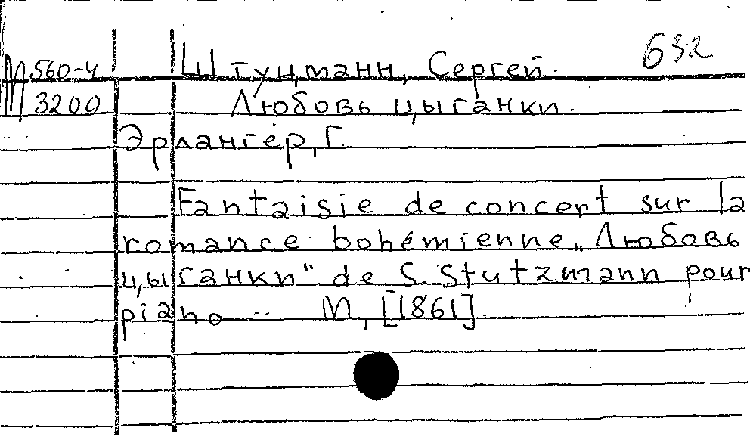 632
М 560-4 Штуцманн, Сергей.
3200 Любовь цыганки.
Эрлангер, Г.
Fantaisie de concert sur la
romance bohémienne „Любовь
цыганки" de S. Stutzmann pour
piano. М, [1861]